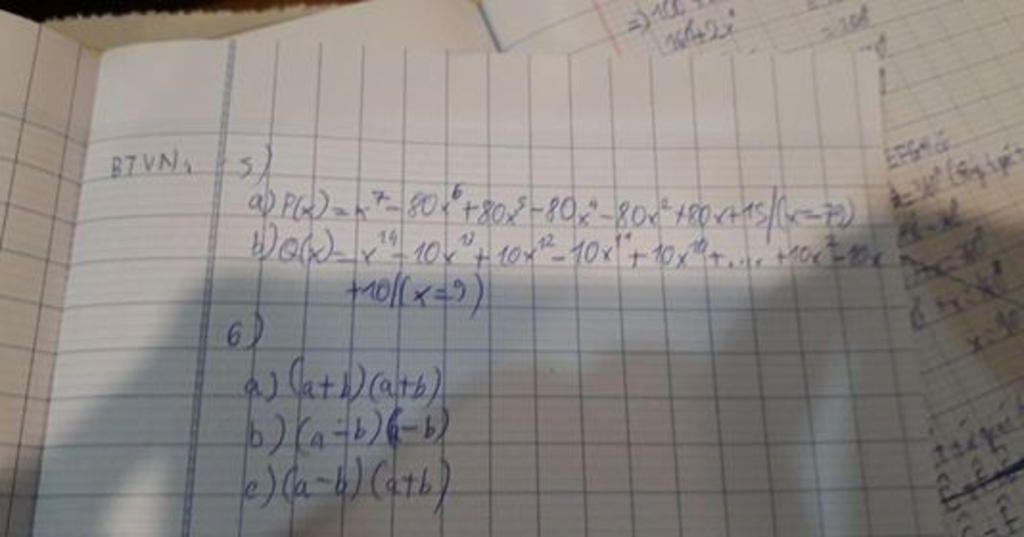 BTVN: 5)
a) P(x) = x⁷ - 80x⁶ + 80x⁵ - 80x⁴ - 80x² + 80x + 15 / (x = 79)
b) Q(x) = x¹⁴ - 10x¹³ + 10x¹² - 10x¹¹ + 10x¹⁰ + .... + 10x² - 10x
+ 10 / (x = 9)
6)
a) (a+b)(a+b)
b) (a-b)(a-b)
c) (a-b)(a+b)